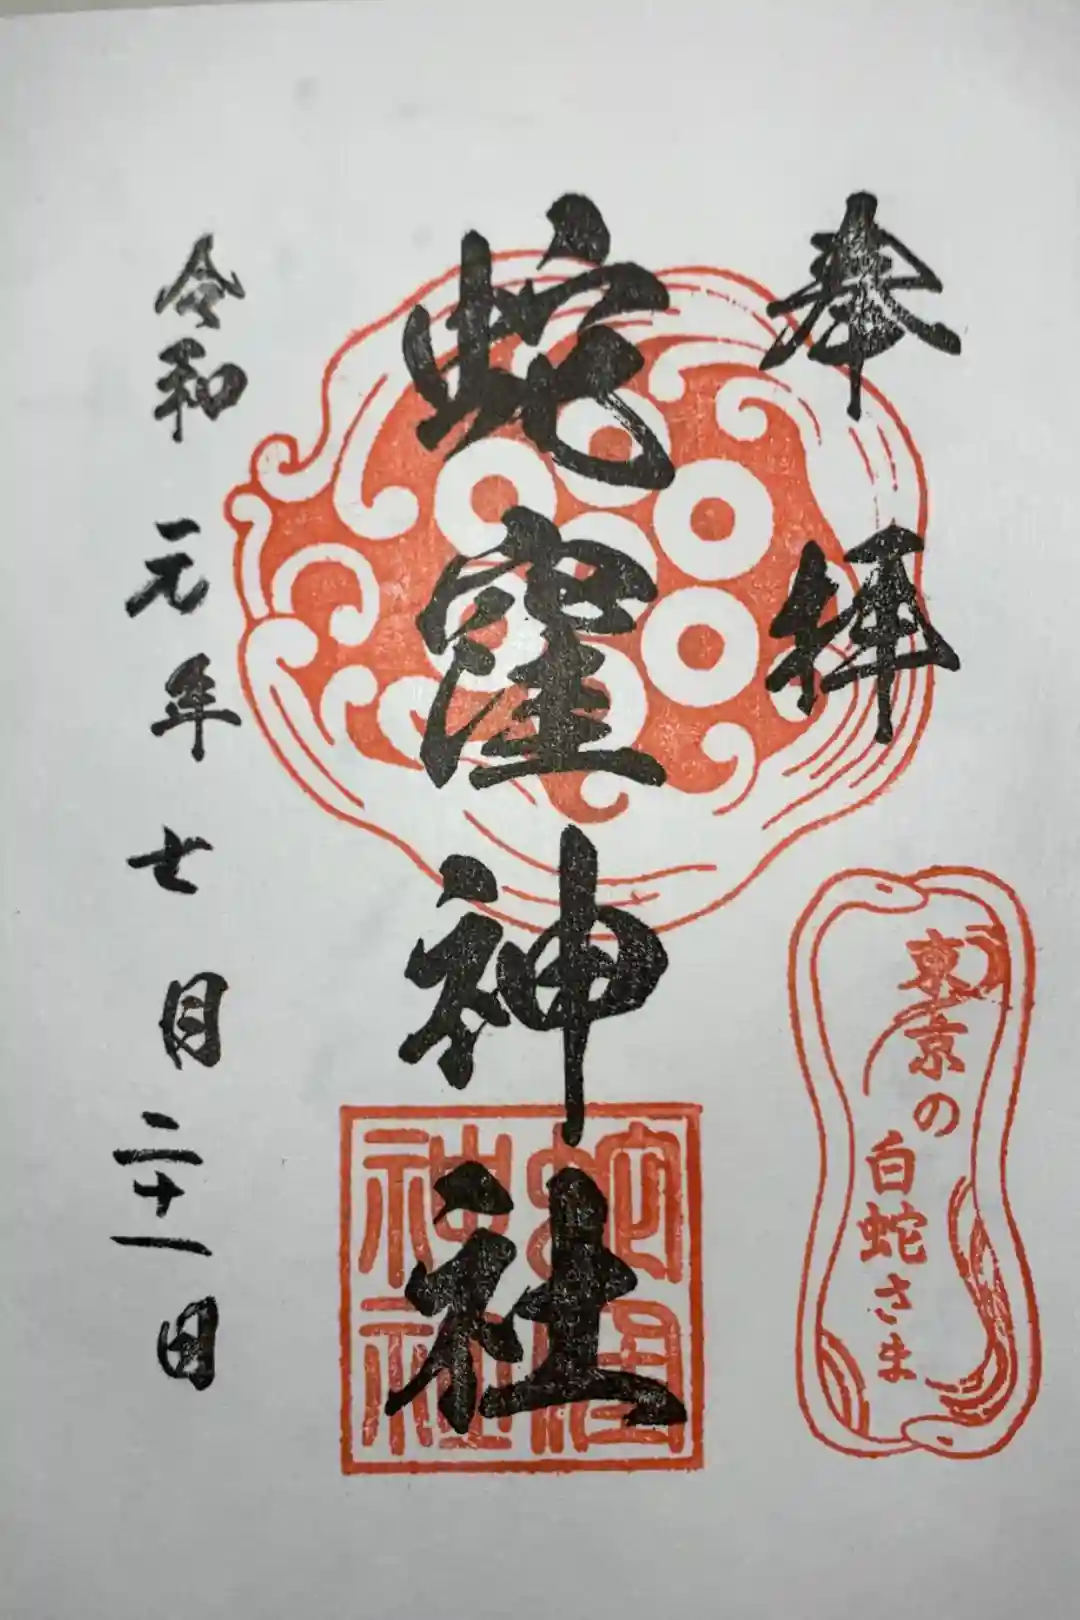 奉拝
蛇窪神社
蛇窪神社
東京の
白蛇さま
令和元年七月二十一日